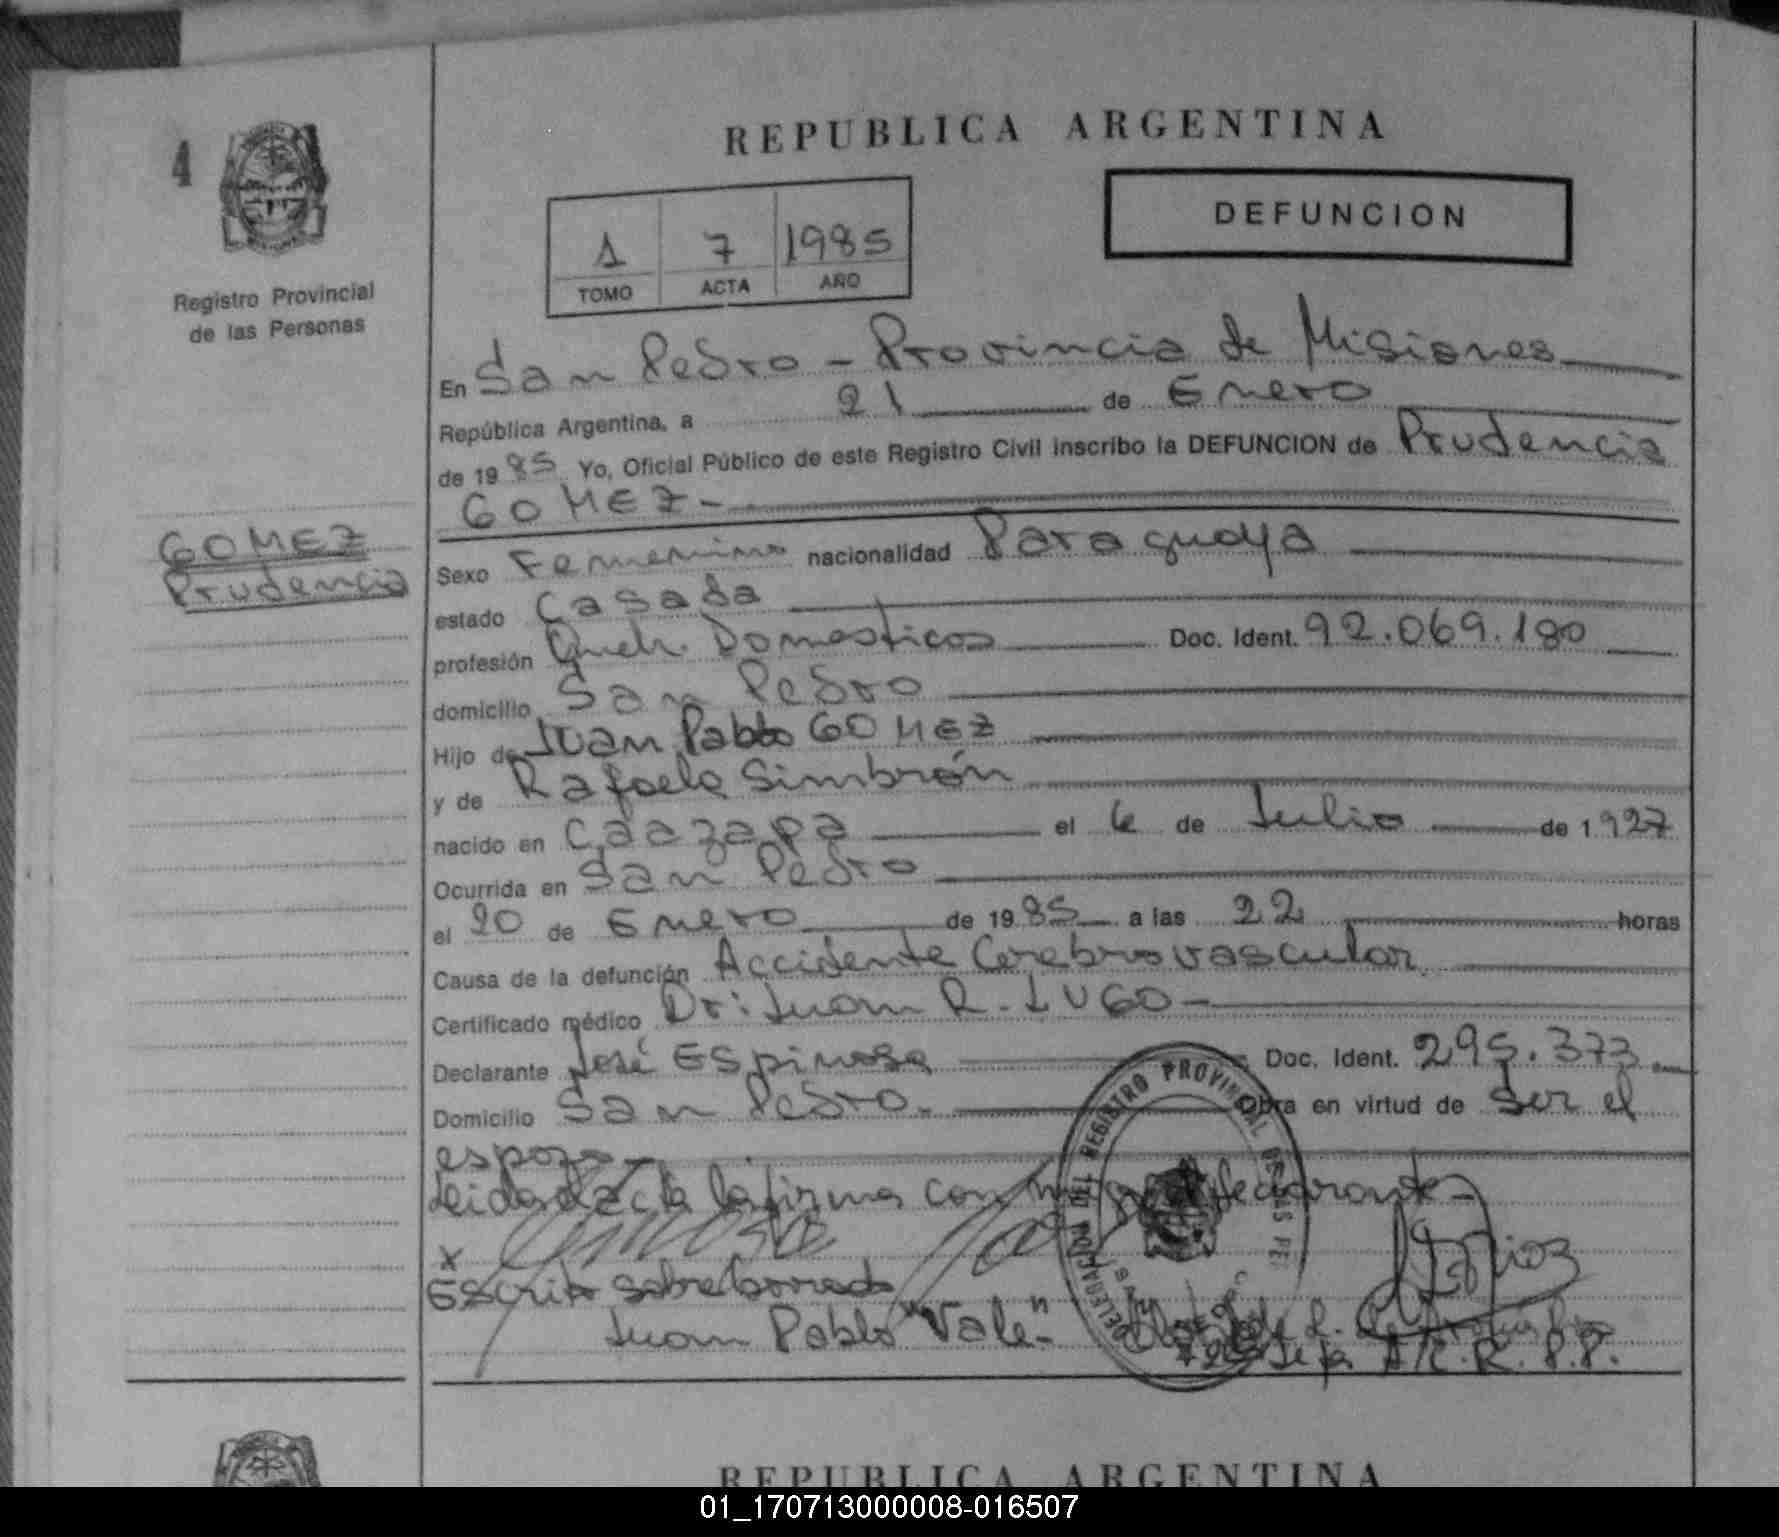 4
REPUBLICA ARGENTINA
DEFUNCION
1 7 1985
TOMO ACTA AÑO
Registro Provincial
de las Personas
En San Pedro - Provincia de Misiones
República Argentina, a 21 de Enero
de 1985 Yo, Oficial Público de este Registro Civil inscribo la DEFUNCION de Prudencia
GOMEZ -
GOMEZ
Prudencia
Sexo Femenino nacionalidad Paraguaya
estado Casada
profesión Queh. Domesticos Doc. Ident. 92.069.180
domicilio San Pedro
Hijo de Juan Pablo GOMEZ
y de Rafaela Simbrón
nacido en Caazapa el 6 de Julio de 1927
Ocurrida en San Pedro
el 20 de Enero de 1985 a las 22 horas
Causa de la defunción Accidente Cerebro vascular
Certificado médico Dr: Juan R. LUGO -
Declarante José Espinosa Doc. Ident. 295.373
Domicilio San Pedro. Obra en virtud de Ser el
espozo -
Leida el acta la firma con declarante -
x
Escrito sobre borrado
Juan Pablo "Vale"
Jefa A/C. R. P.P.
DELEGACION DEL REGISTRO PROVINCIAL DE LAS PE
REPUBLICA ARGENTINA
01_170713000008-016507